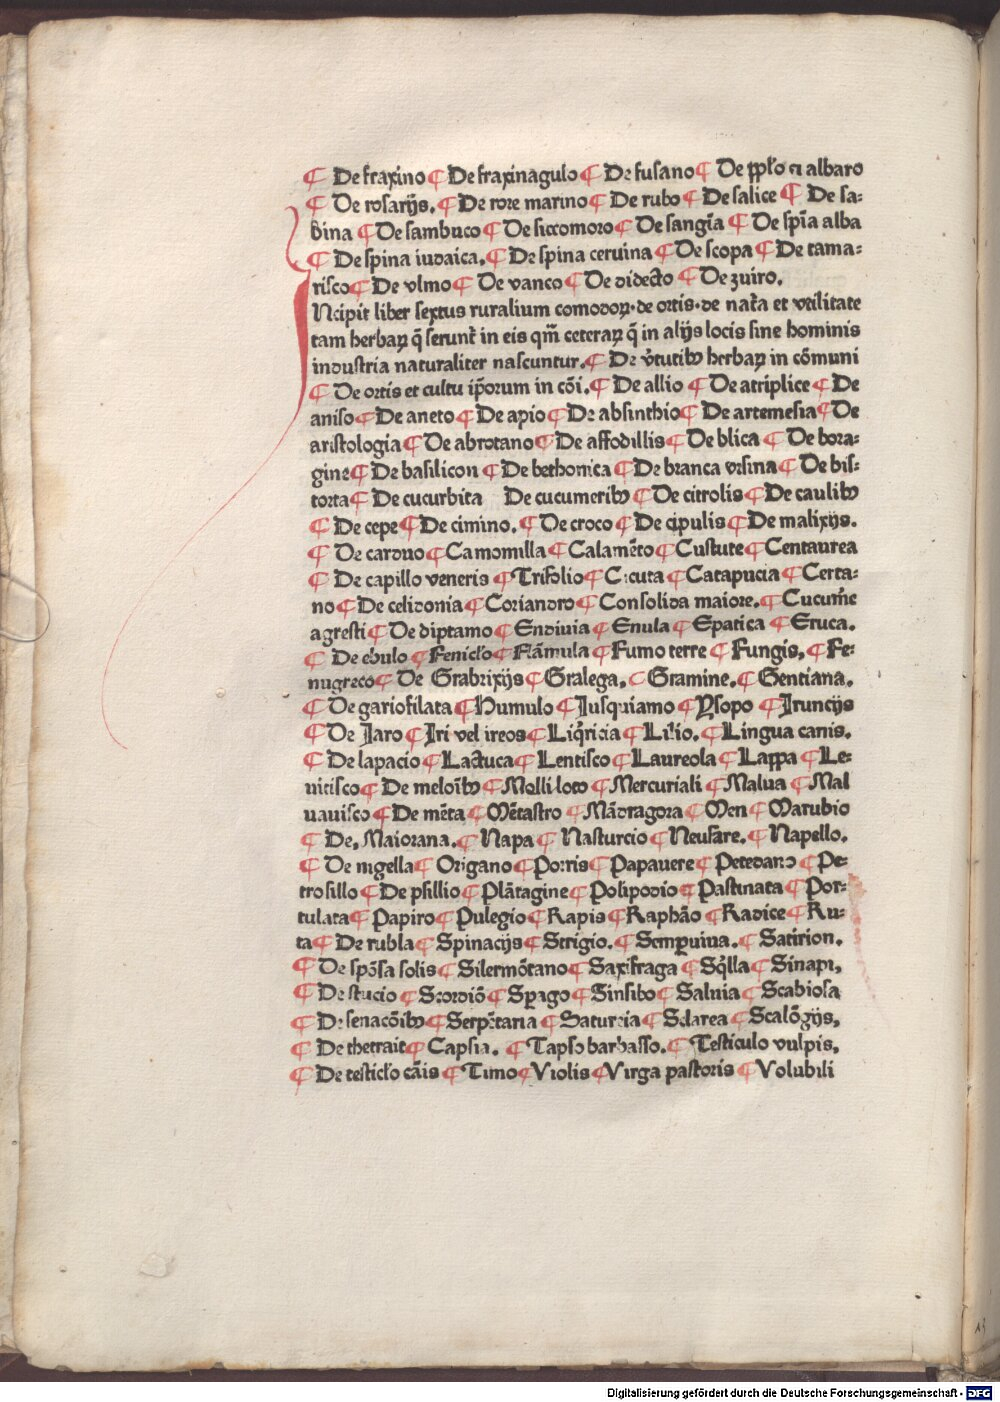 ¶ De fraxino ¶ De fraxinagulo ¶ De fusano ¶ De pplo ⁊ albaro
¶ De rosarijs. ¶ De rore marino ¶ De rubo ¶ De salice ¶ De sa⸗
bina ¶ De sambuco ¶ De siccomoro ¶ De sangīa ¶ De spīa alba
¶ De spina iudaica. ¶ De spina ceruina ¶ De scopa ¶ De tama⸗
risco ¶ De vlmo ¶ De vanco ¶ De didecto ¶ De zuiro.
Ncipit liber sextus ruralium comodoꝝ·de ortis·de nat̄a et vtilitate
tam herbaꝝ q̄ serunt̄ in eis qm̄ ceteraꝝ q̄ in alijs locis sine hominis
industria naturaliter nascuntur. ¶ De v̄tutibꝰ herbaꝝ in cōmuni
¶ De ortis et cultu ip̄orum in cōi. ¶ De allio ¶ De atriplice ¶ De
aniso ¶ De aneto ¶ De apio ¶ De absinthio ¶ De artemesia ¶ De
aristologia ¶ De abrotano ¶ De affodillis ¶ De blica ¶ De bora⸗
gine ¶ De basilicon ¶ De bethonica ¶ De branca vrsina ¶ De bis⸗
torta ¶ De cucurbita De cucumeribꝰ ¶ De citrolis ¶ De caulibꝰ
¶ De cepe ¶ De cimino. ¶ De croco ¶ De cipulis ¶ De malixijs.
¶ De carduo ¶ Camomilla ¶ Calamēto ¶ Custute ¶ Centaurea
¶ De capillo veneris ¶ Trifolio ¶ Cicuta ¶ Catapucia ¶ Certa⸗
no ¶ De celidonia ¶ Coriandro ¶ Consolida maiore. ¶ Cucum̄e
agresti ¶ De diptamo ¶ Endiuia ¶ Enula ¶ Epatica ¶ Eruca.
¶ De ebulo ¶ Feniclo ¶ Flāmula ¶ Fumo terre ¶ Fungis, ¶ Fe⸗
nugreco ¶ De Grabrixijs ¶ Gralega. ¶ Gramine. ¶ Gentiana.
¶ De gariofilata ¶ Humulo ¶ Iusquiamo ¶ Ysopo ¶ Iruncijs
¶ De Iaro ¶ Iri vel ireos ¶ Liq̄ricia ¶ Lilio. ¶ Lingua canis.
¶ De lapacio ¶ Lactuca ¶ Lentisco ¶ Laureola ¶ Lappa ¶ Le⸗
uitisco ¶ De meloībꝰ ¶ Melliloto ¶ Mercuriali ¶ Malua ¶ Mal
uauisco ¶ De mēta ¶ Mētastro ¶ Mādragora ¶ Men ¶ Marubio
¶ De, Maiorana. ¶ Napa ¶ Nasturcio ¶ Neufare. ¶ Napello.
¶ De nigella ¶ Origano ¶ Porris ¶ Papauere ¶ Petedano ¶ Pe⸗
trosillo ¶ De psillio ¶ Plātagine ¶ Polipodio ¶ Pastinata ¶ Por⸗
tulata ¶ Papiro ¶ Pulegio ¶ Rapis ¶ Raphāo ¶ Radice ¶ Ru⸗
ta ¶ De rubla ¶ Spinacijs ¶ Strigio. ¶ Semꝑuiua. ¶ Satirion.
¶ De spōsa solis ¶ Silermōtano ¶ Saxifraga ¶ Sq̄lla ¶ Sinapi,
¶ De stucio ¶ Scordiō ¶ Sꝑago ¶ Sinsibo ¶ Saluia ¶ Scabiosa
¶ De senacōibꝰ ¶ Serpētaria ¶ Satureia ¶ Sclarea ¶ Scalōgijs,
¶ De thetrait ¶ Capsia. ¶ Tapso barbasso. ¶ Testiculo vulpis,
¶ De testiclo cāis ¶ Timo ¶ Violis ¶ Virga pastoris ¶ Volubili
Digitalisierung gefördert durch die Deutsche Forschungsgemeinschaft - DFG